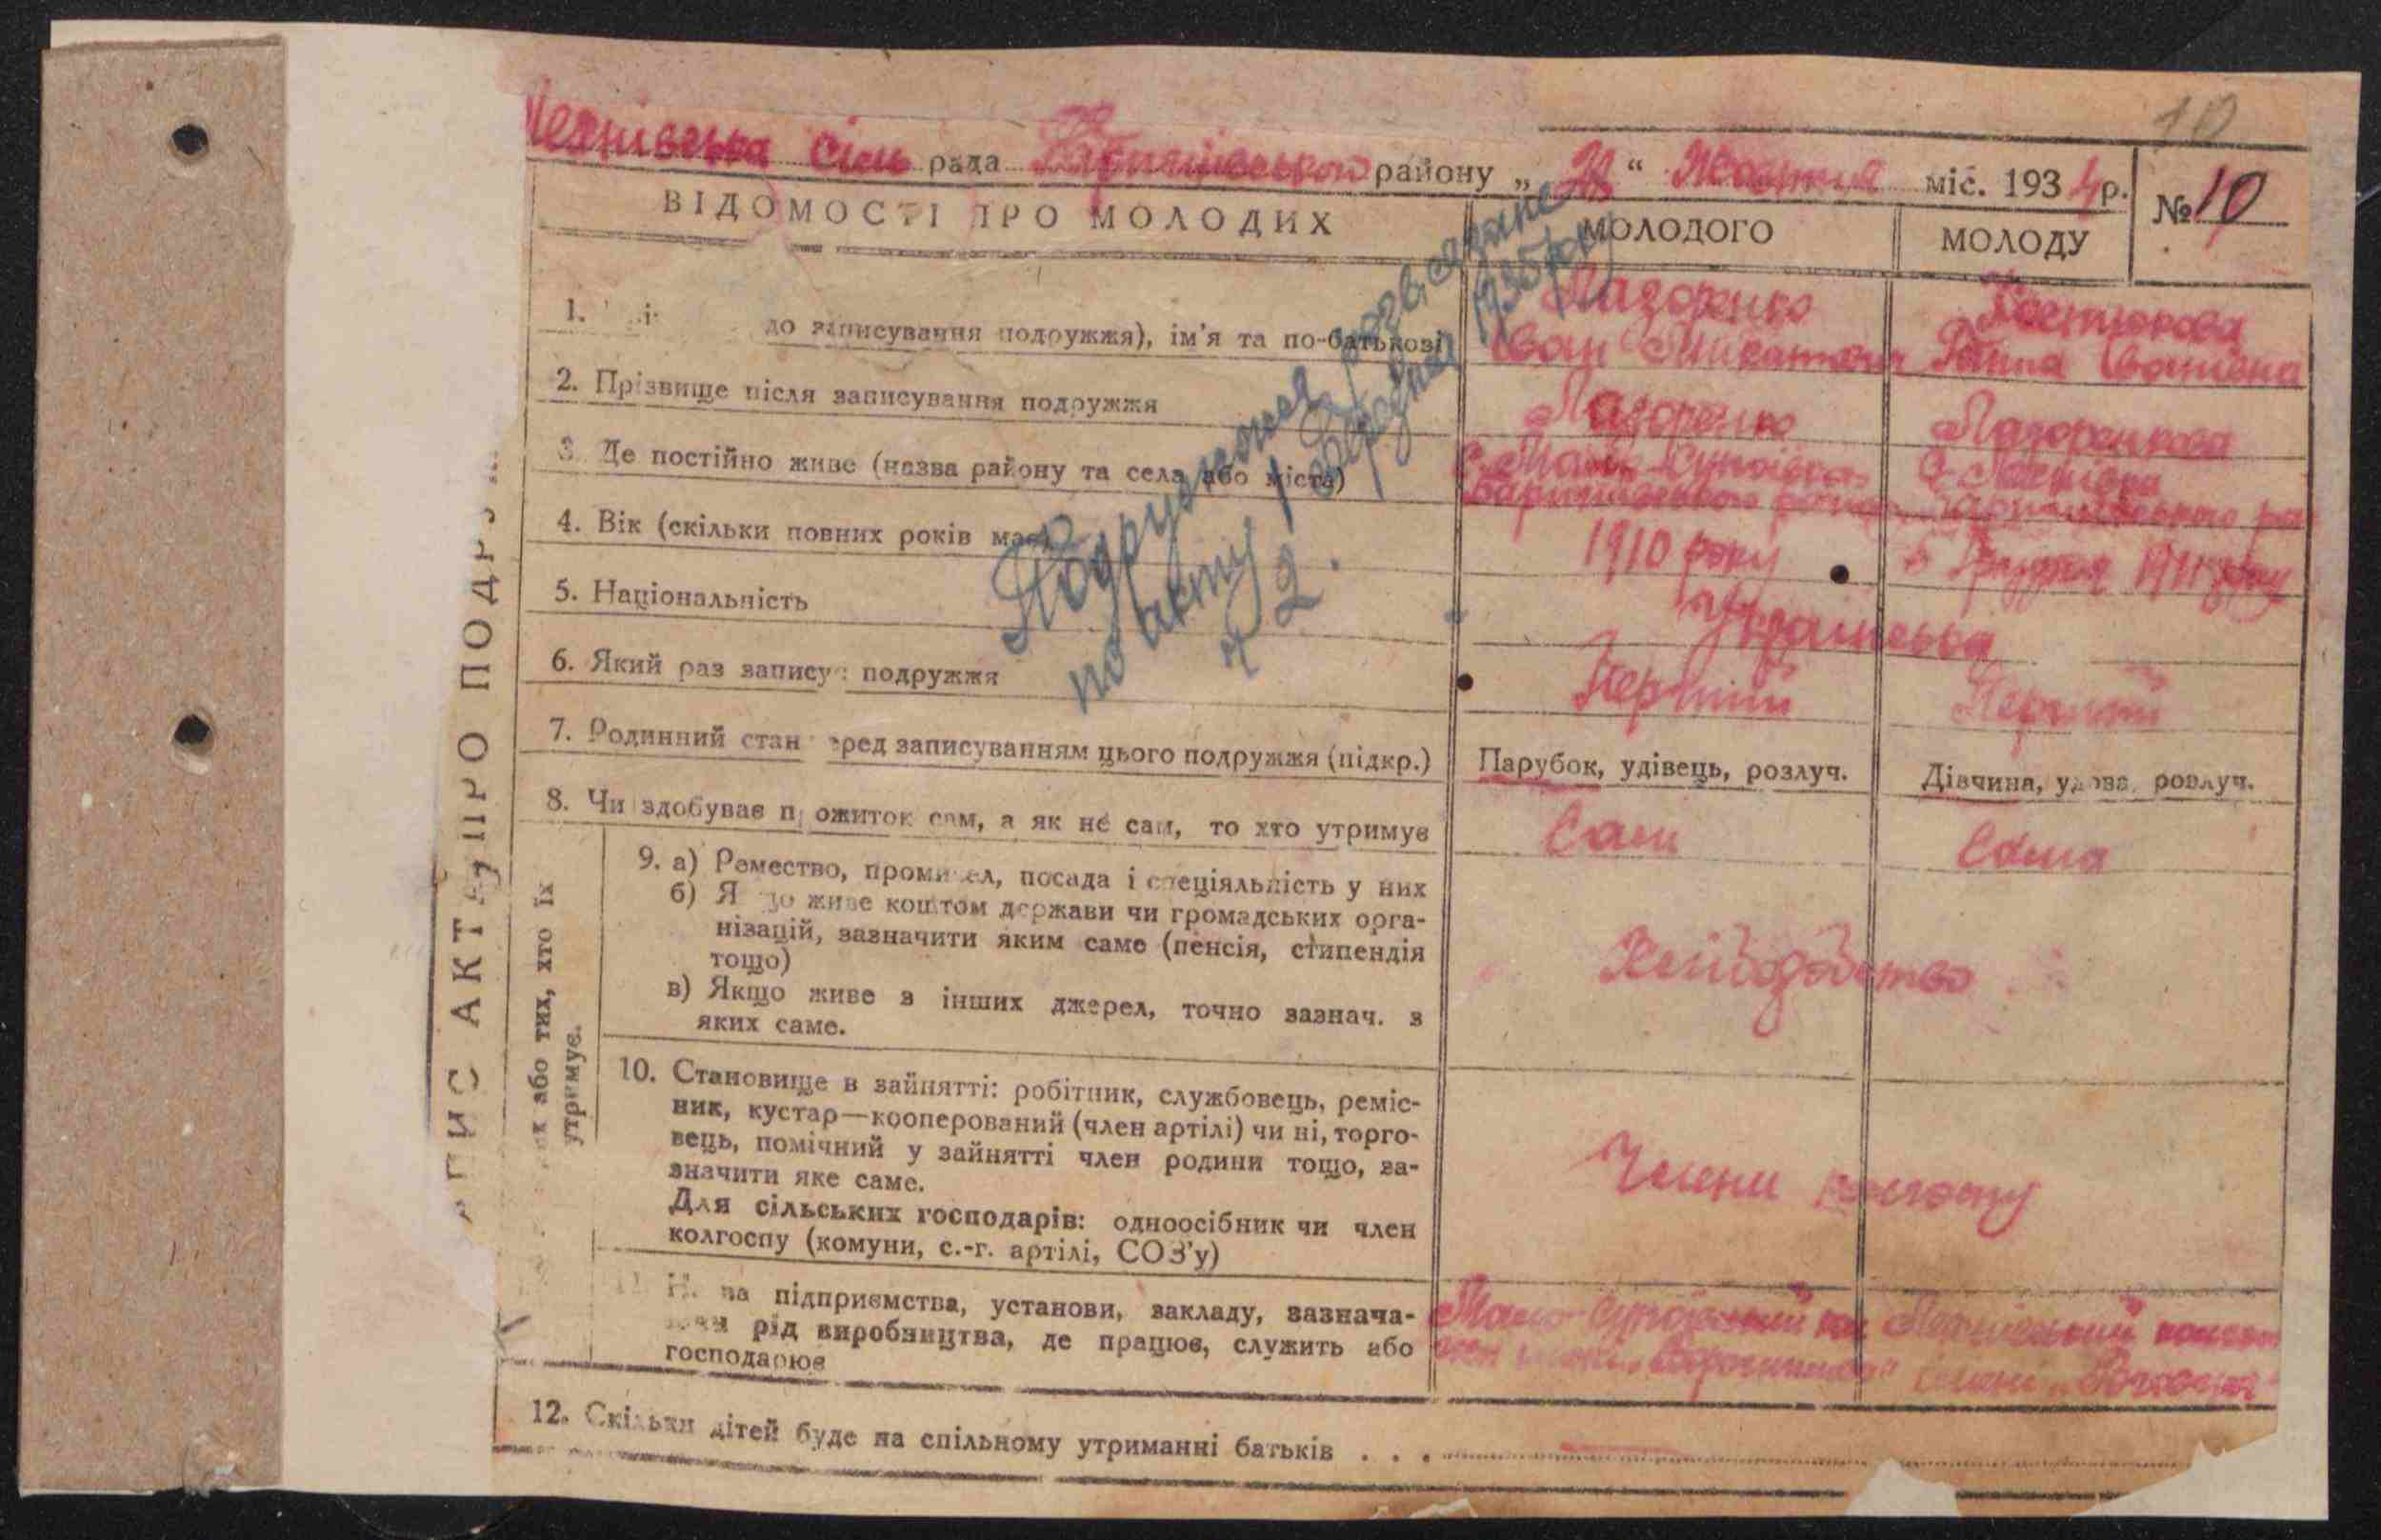 10
Лехнівська сіль рада Баришівського району „ “ Жовтня міс. 1934 р.
№ 10
ВІДОМОСТІ ПРО МОЛОДИХ
МОЛОДОГО
МОЛОДУ
1. до записування подружжя), ім'я та по-батькові
Лазоренко
Іван Микитович
Костюкова
Ганна Іванівна
2. Прізвище після записування подружжя
Лазоренко
Лазоренкова
3. Де постійно живе (назва району та села або міста)
С. Мала-Супоївка
Баришівського району
С. Лехнівка
Баришівського ра
4. Вік (скільки повних років має)
1910 року
5 Грудня 1911 року
5. Національність
Українська
6. Який раз записує подружжя
Перший
Перший
7. Родинний стан перед записуванням цього подружжя (підкр.)
Парубок, удівець, розлуч.
Дівчина, удова, розлуч.
8. Чи здобуває прожиток сам, а як не сам, то хто утримує
Сам
Сама
9. а) Ремество, промисел, посада і спеціяльність у них
б) Якщо живе коштом держави чи громадських орга-
нізацій, зазначити яким саме (пенсія, стипендія
тощо)
в) Якщо живе з інших джерел, точно зазнач. з
яких саме.
Хліборобство
10. Становище в зайнятті: робітник, службовець, реміс-
ник, кустар—кооперований (член артілі) чи ні, торго-
вець, помічний у зайнятті член родини тощо, за-
значити яке саме.
Для сільських господарів: одноосібник чи член
колгоспу (комуни, с.-г. артілі, СОЗ'у)
Члени колгоспу
11. Назва підприємства, установи, закладу, зазнача-
ючи рід виробництва, де працює, служить або
господарює
Мало-Супоївський кол
Лехнівський колгосп
12. Скільки дітей буде на спільному утриманні батьків . . .
ПИС АКТА ПРО ПОДРУ
их або тих, хто їх
утримує.
Подружжя розвязане
по акту 1935 року
ч 2.